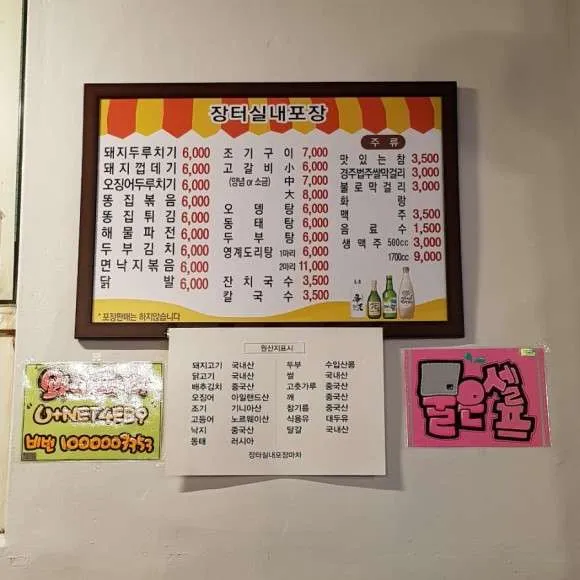 장터실내포장
돼지두루치기 6,000
돼지껍데기 6,000
오징어두루치기 6,000
똥집볶음 6,000
똥집튀김 6,000
해물파전 6,000
두부김치 6,000
면낙지볶음 6,000
닭발 6,000
조기구이 7,000
고갈비 小 6,000
(양념 or 소금) 中 7,000
大 8,000
오뎅탕 6,000
동태탕 6,000
두부탕 6,000
영계도리탕 1마리 6,000
2마리 11,000
잔치국수 3,500
칼국수 3,500
주류
맛있는참 3,500
경주법주쌀막걸리 3,000
불로막걸리 3,000
화랑
맥주 3,500
음료수 1,500
생맥주 500cc 3,000
1700cc 9,000
* 포장판매는 하지않습니다
원산지표시
돼지고기 국내산
닭고기 국내산
배추김치 중국산
오징어 아일랜드산
조기 기니아산
고등어 노르웨이산
낙지 중국산
동태 러시아
두부 수입산콩
쌀 국내산
고춧가루 중국산
깨 중국산
참기름 중국산
식용유 대두유
달걀 국내산
장터실내포장마차
물은
셀프